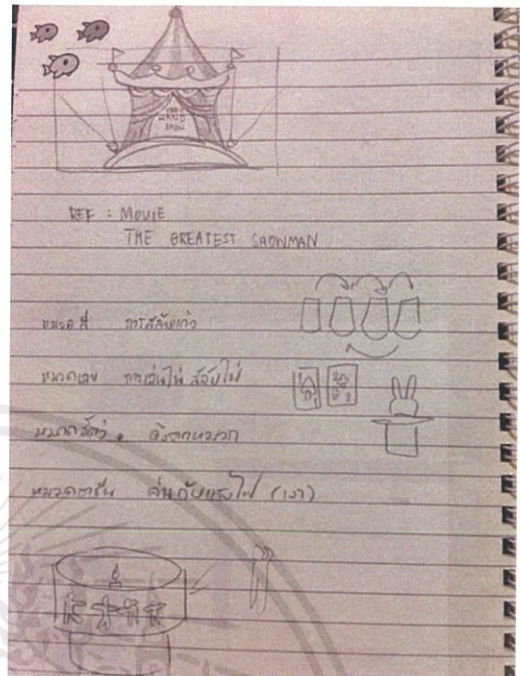 HAND
SHOW
REF : MOVIE
THE GREATEST SHOWMAN
หมวดสี การสลับแก้ว
หมวดเลข การเล่นไพ่ สลับไพ่
หมวดสัตว์ . ดึงจากหมวก
หมวดการ์ตูน เล่นกับแสงไฟ (เงา)